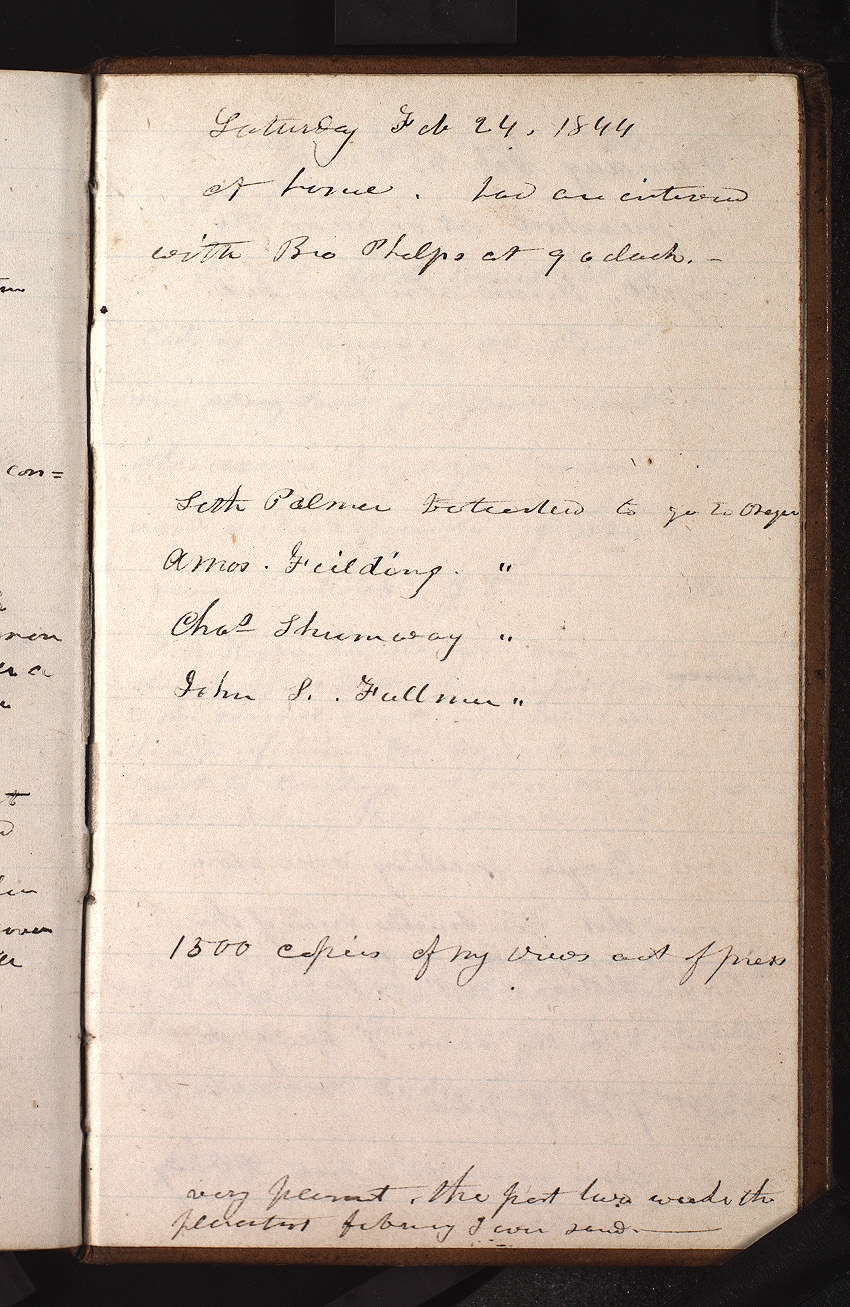 Saturday Feb 24. 1844
at home. had an interview
with Bro Phelps at 9 oclock. -
Seth Palmer voluntee[r]ed to go to Oregon
Amos. Feilding. "
Chas Shumway "
John S. Fullmer "
1500 copies of my views out of press
very pleasant. the past two weeks the
pleasantest february I ever
con=